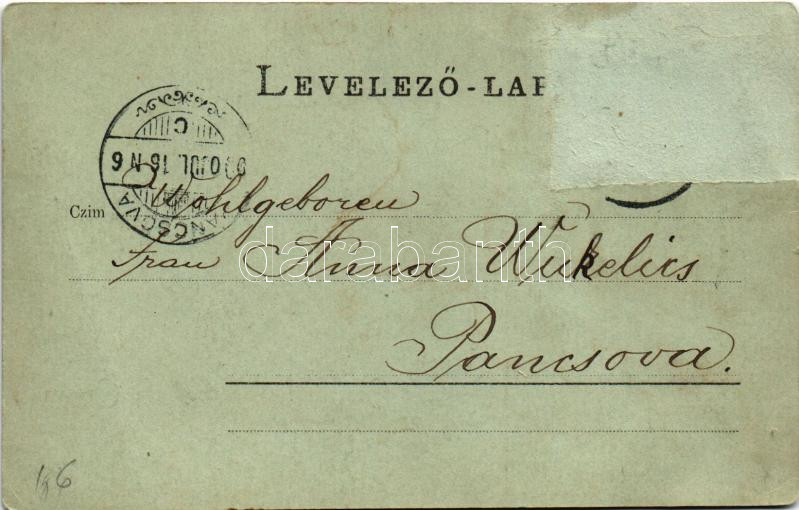 LEVELEZŐ-LAP
PANCSOVA
C
900 JUL. 16 N 6
Czim
Wohlgeboren
Frau Anna Wukelics
Pancsova.
darabanth.com